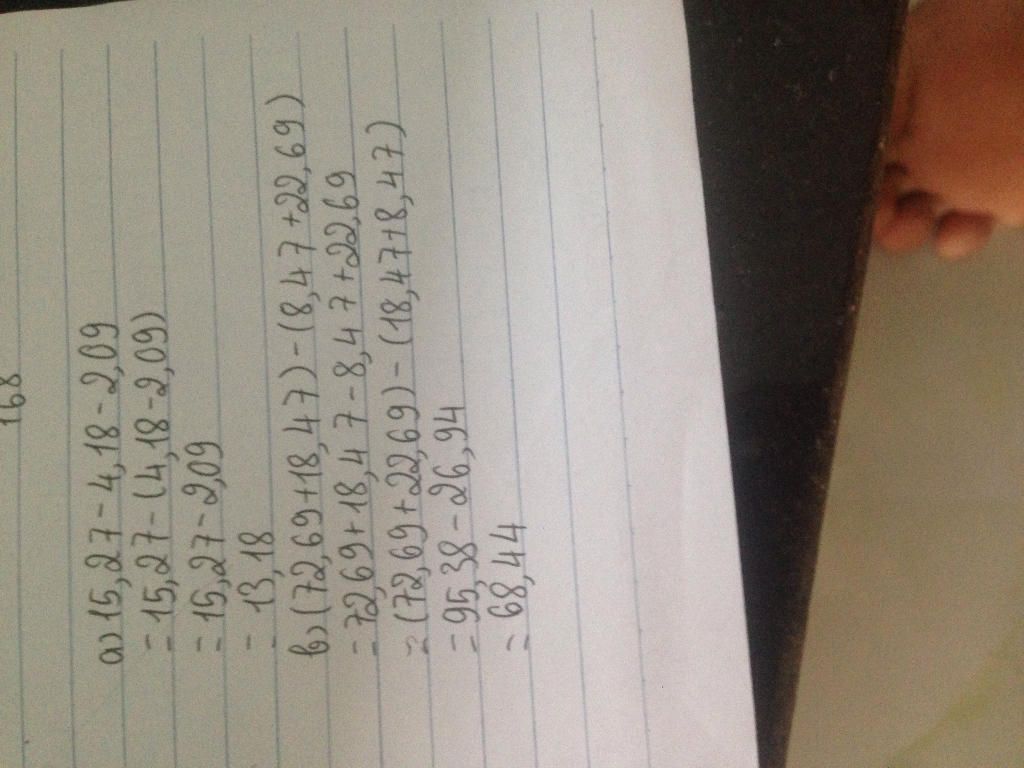 168
a) 15,27 - 4,18 - 2,09
= 15,27 - (4,18 - 2,09)
= 15,27 - 2,09
= 13,18
b) (72,69 + 18,47) - (8,47 + 22,69)
= 72,69 + 18,47 - 8,47 + 22,69
= (72,69 + 22,69) - (18,47 + 8,47)
= 95,38 - 26,94
= 68,44